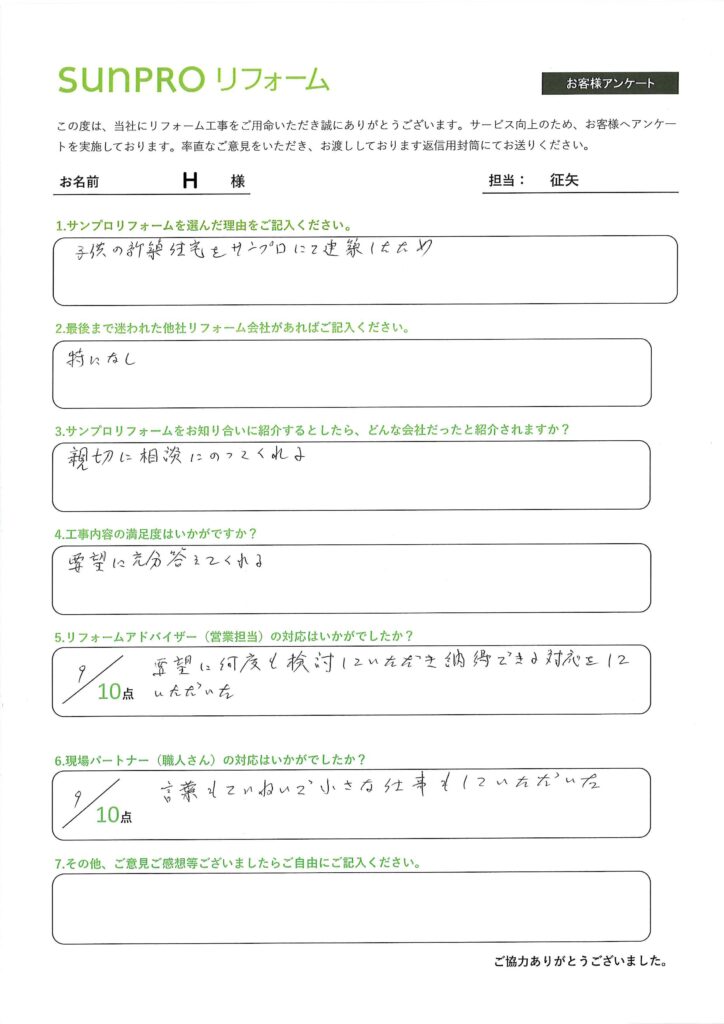 sunPRO リフォーム
お客様アンケート
この度は、当社にリフォーム工事をご用命いただき誠にありがとうございます。サービス向上のため、お客様へアンケー
トを実施しております。率直なご意見をいただき、お渡ししております返信用封筒にてお送りください。
お名前 H 様 担当： 征矢
1.サンプロリフォームを選んだ理由をご記入ください。
子供の新築住宅をサンプロにて建築したため
2.最後まで迷われた他社リフォーム会社があればご記入ください。
特になし
3.サンプロリフォームをお知り合いに紹介するとしたら、どんな会社だったと紹介されますか？
親切に相談にのってくれる
4.工事内容の満足度はいかがですか？
要望に充分答えてくれる
5.リフォームアドバイザー（営業担当）の対応はいかがでしたか？
9/10点 要望に何度も検討していただき納得できる対応をして
いただいた
6.現場パートナー（職人さん）の対応はいかがでしたか？
9/10点 言葉もていねいで小さな仕事もしていただいた
7.その他、ご意見ご感想等ございましたらご自由にご記入ください。
ご協力ありがとうございました。